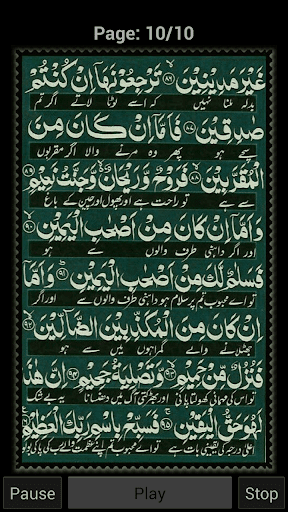 Page: 10/10
غَيْرَ مَدِيْنِيْنَ ۸۶ تَرْجِعُوْنَهَاۤ اِنْ كُنْتُمْ
بدلہ ملنا نہیں کہ اسے لوٹا لاتے اگر تم
صٰدِقِيْنَ ۸۷ فَاَمَّاۤ اِنْ كَانَ مِنَ
سچے ہو پھر وہ مرنے والا اگر مقربوں
الْمُقَرَّبِيْنَ ۸۸ فَرَوْحٌ وَّرَيْحَانٌ وَّجَنَّتُ نَعِيْمٍ ۸۹
سے ہے تو راحت ہے اور پھول اور چین کے باغ
وَاَمَّاۤ اِنْ كَانَ مِنْ اَصْحٰبِ الْيَمِيْنِ ۹۰
اور اگر داہنی طرف والوں سے ہو
فَسَلٰمٌ لَّكَ مِنْ اَصْحٰبِ الْيَمِيْنِ ۹۱ وَاَمَّاۤ
تو اے محبوب تم پر سلام ہو داہنی طرف والوں سے اور اگر
اِنْ كَانَ مِنَ الْمُكَذِّبِيْنَ الضَّآلِّيْنَ ۹۲
جھٹلانے والے گمراہوں میں سے ہو
فَنُزُلٌ مِّنْ حَمِيْمٍ ۹۳ وَّتَصْلِيَةُ جَحِيْمٍ ۹۴ اِنَّ هٰذَا
تو اس کی مہمانی کھولتا پانی اور بھڑکتی آگ میں دھنسانا یہ بے شک
لَهُوَ حَقُّ الْيَقِيْنِ ۹۵ فَسَبِّحْ بِاسْمِ رَبِّكَ الْعَظِيْمِ ۹۶
اعلیٰ درجہ کی یقینی بات ہے تو اے محبوب تم اپنے عظمت والے رب کی پاکی بولو
Pause Play Stop